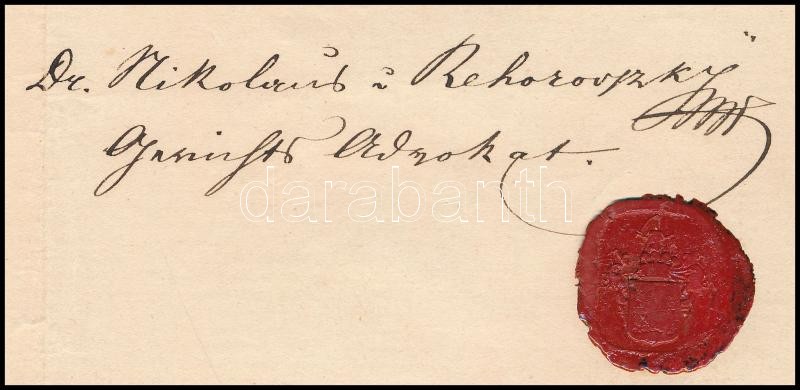 Dr. Nikolaus v Rehorovszkÿ
Gerichts Advokat.
darabanth